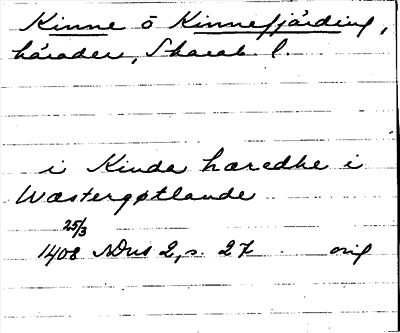 Kinne o Kinnefjärding,
härader, Skarab. l.
i Kinda hæredhe i
Wæstergøtlande
25/3
1408 NDns 2, s. 27 orig